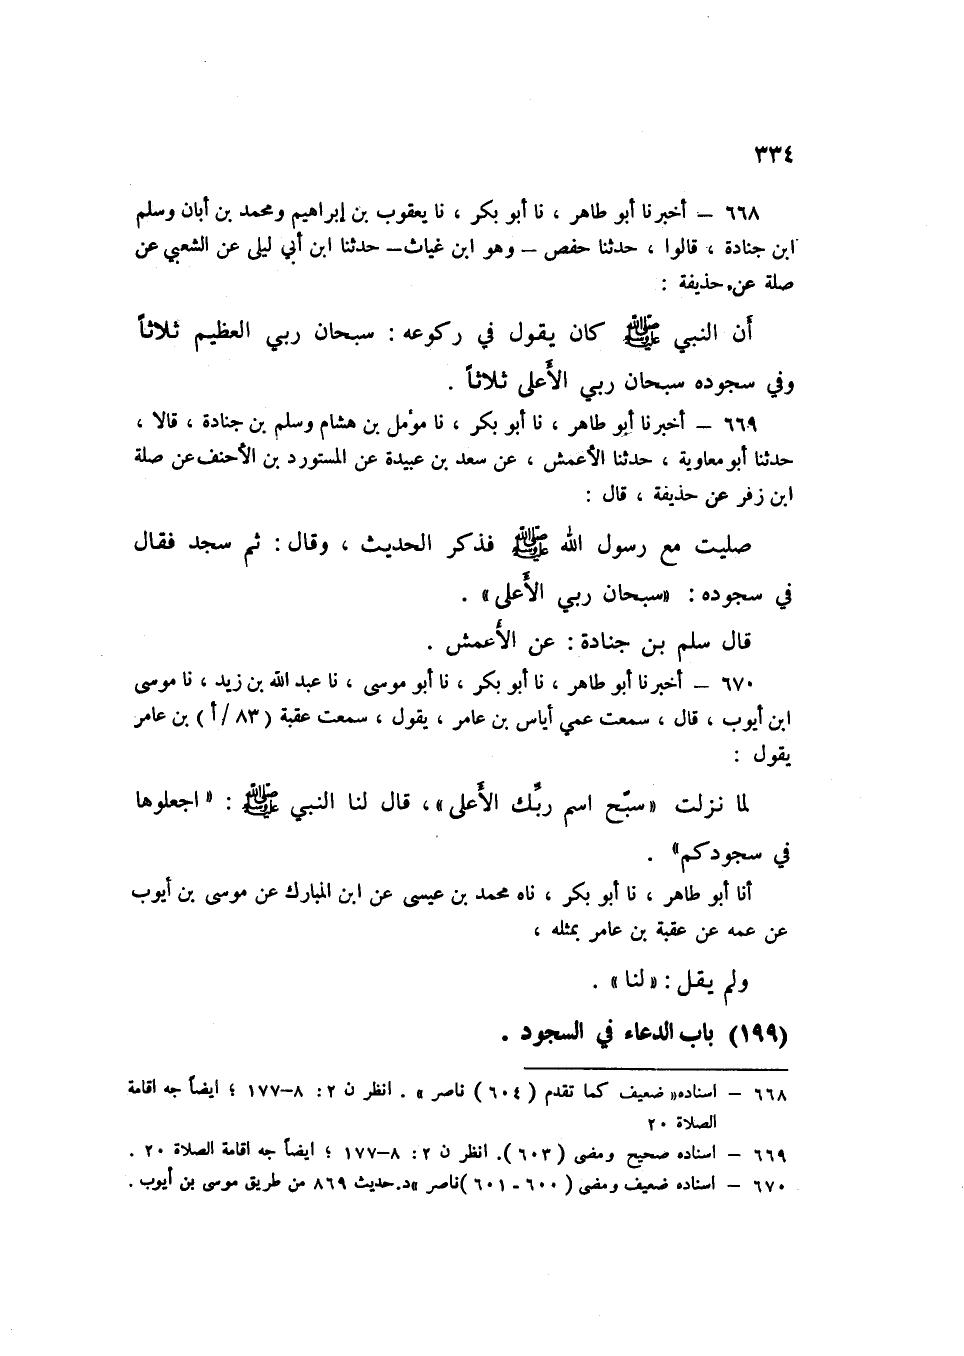 ٣٣٤
٦٦٨ – أخبرنا أبو طاهر ، نا أبو بكر ، نا يعقوب بن إبراهيم ومحمد بن أبان وسلم
ابن جنادة ، قالوا ، حدثنا حفص – وهو ابن غياث– حدثنا ابن أبي ليلى عن الشعبي عن
صلة عن حذيفة :
أن النبي ﷺ كان يقول في ركوعه : سبحان ربي العظيم ثلاثاً
وفي سجوده سبحان ربي الأعلى ثلاثاً .
٦٦٩ – أخبرنا أبو طاهر ، نا أبو بكر ، نا مؤمل بن هشام وسلم بن جنادة ، قالا ،
حدثنا أبو معاوية ، حدثنا الأعمش ، عن سعد بن عبيدة عن المستورد بن الأحنف عن صلة
ابن زفر عن حذيفة ، قال :
صليت مع رسول الله ﷺ فذكر الحديث ، وقال : ثم سجد فقال
في سجوده : «سبحان ربي الأعلى» .
قال سلم بن جنادة : عن الأعمش .
٦٧٠ – أخبرنا أبو طاهر ، نا أبو بكر ، نا أبو موسى ، نا عبد الله بن زيد ، نا موسى
ابن أيوب ، قال ، سمعت عمي أياس بن عامر ، يقول ، سمعت عقبة ( ٨٣ / أ ) بن عامر
يقول :
لما نزلت «سبّح اسم ربّك الأعلى» ، قال لنا النبي ﷺ : « اجعلوها
في سجودكم» .
أنا أبو طاهر ، نا أبو بكر ، ناه محمد بن عيسى عن ابن المبارك عن موسى بن أيوب
عن عمه عن عقبة بن عامر بمثله ،
ولم يقل : «لنا» .
(١٩٩) باب الدعاء في السجود .
٦٦٨ – اسناده« ضعيف كما تقدم ( ٦٠٤ ) ناصر » . انظر ن ٢ : ٨–١٧٧ ؛ ايضاً جه اقامة
الصلاة ٢٠
٦٦٩ – اسناده صحيح ومضى ( ٦٠٣ ). انظر ن ٢ : ٨–١٧٧ ؛ ايضاً جه اقامة الصلاة ٢٠ .
٦٧٠ – اسناده ضعيف ومضى ( ٦٠٠ - ٦٠١ )ناصر »د.حديث ٨٦٩ من طريق موسى بن أيوب .